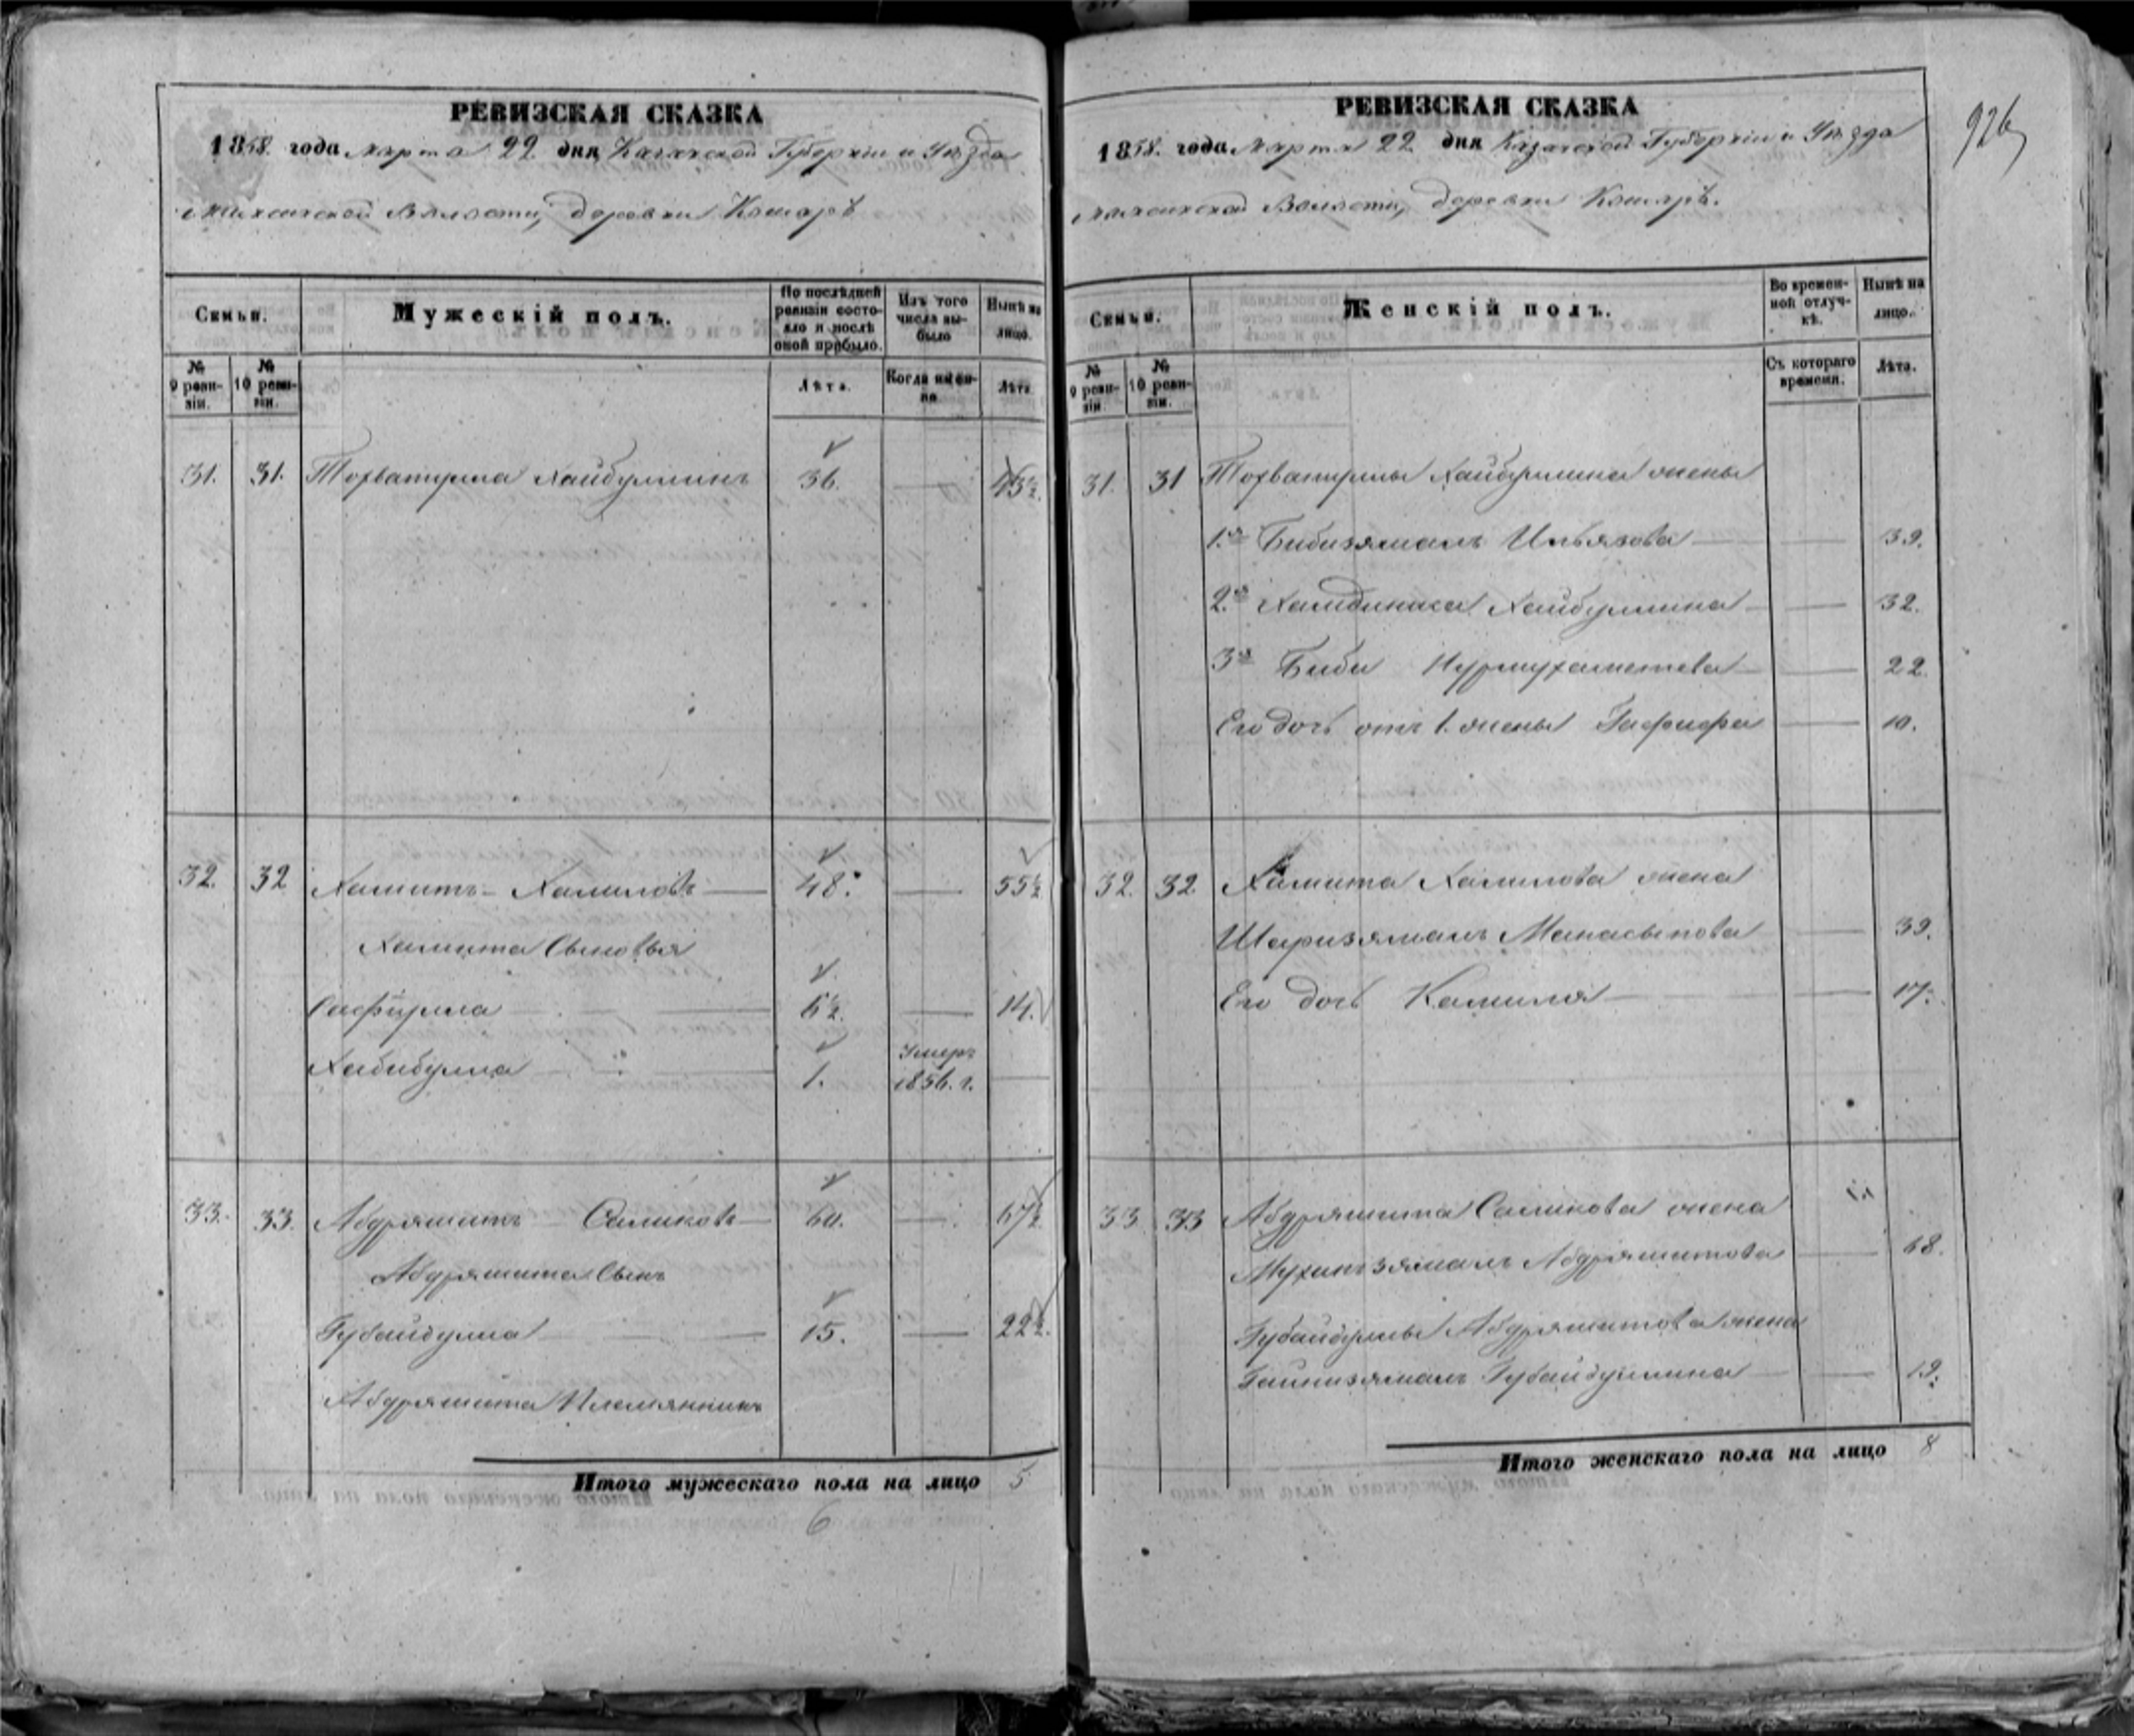 РЕВИЗСКАЯ СКАЗКА
1858. года Марта 22 дня Казанской Губерніи и Уѣзда
Волости, деревни Кошаръ
Семьи.
Мужескій полъ.
По послѣдней ревизіи состояло и послѣ оной прибыло.
Изъ того числа выбыло
Нынѣ на лицо.
№ 9 ревизіи.
№ 10 ревизіи.
Лѣта.
Когда именно
Лѣта
31. 31. Тохватулла Хайбуллинъ 36. — 43½.
32. 32 Хамитъ Халиловъ — 48. — 55½
Хамита Сыновья
Сафіулла — 6½. — 14.
Хабибулла — 1. Умеръ 1856. г. —
33. 33. Абдряшитъ Салиховъ 60. — 67½
Абдряшита Сынъ
Губайдулла — 15. — 22½.
Абдряшита Племянникъ
Итого мужескаго пола на лицо 5
6
926
РЕВИЗСКАЯ СКАЗКА
1858. года Марта 22 дня Казанской Губерніи и Уѣзда
Волости, деревни Кошаръ.
Семьи.
Женскій полъ.
Во временной отлучкѣ.
Нынѣ на лицо.
№ 9 ревизіи.
№ 10 ревизіи.
Съ котораго времени.
Лѣта.
31. 31 Тохватуллы Хайбуллина жены
1.я Бибизямалъ Ильясова — 39.
2.я Хамдиниса Хайбуллина — 32.
3я Биби Нурмухаметева — 22
Его дочь отъ 1. жены Гафифа — 10.
32. 32. Хамита Халилова жена
Шаризямалъ Манасыпова — 39.
Его дочь Камиля — 17.
33 33 Абдряшита Салихова жена
Мухинзямалъ Абдряшитова — 68.
Губайдуллы Абдряшитова жена
Гайнизямалъ Губайдуллина — 19.
Итого женскаго пола на лицо 8